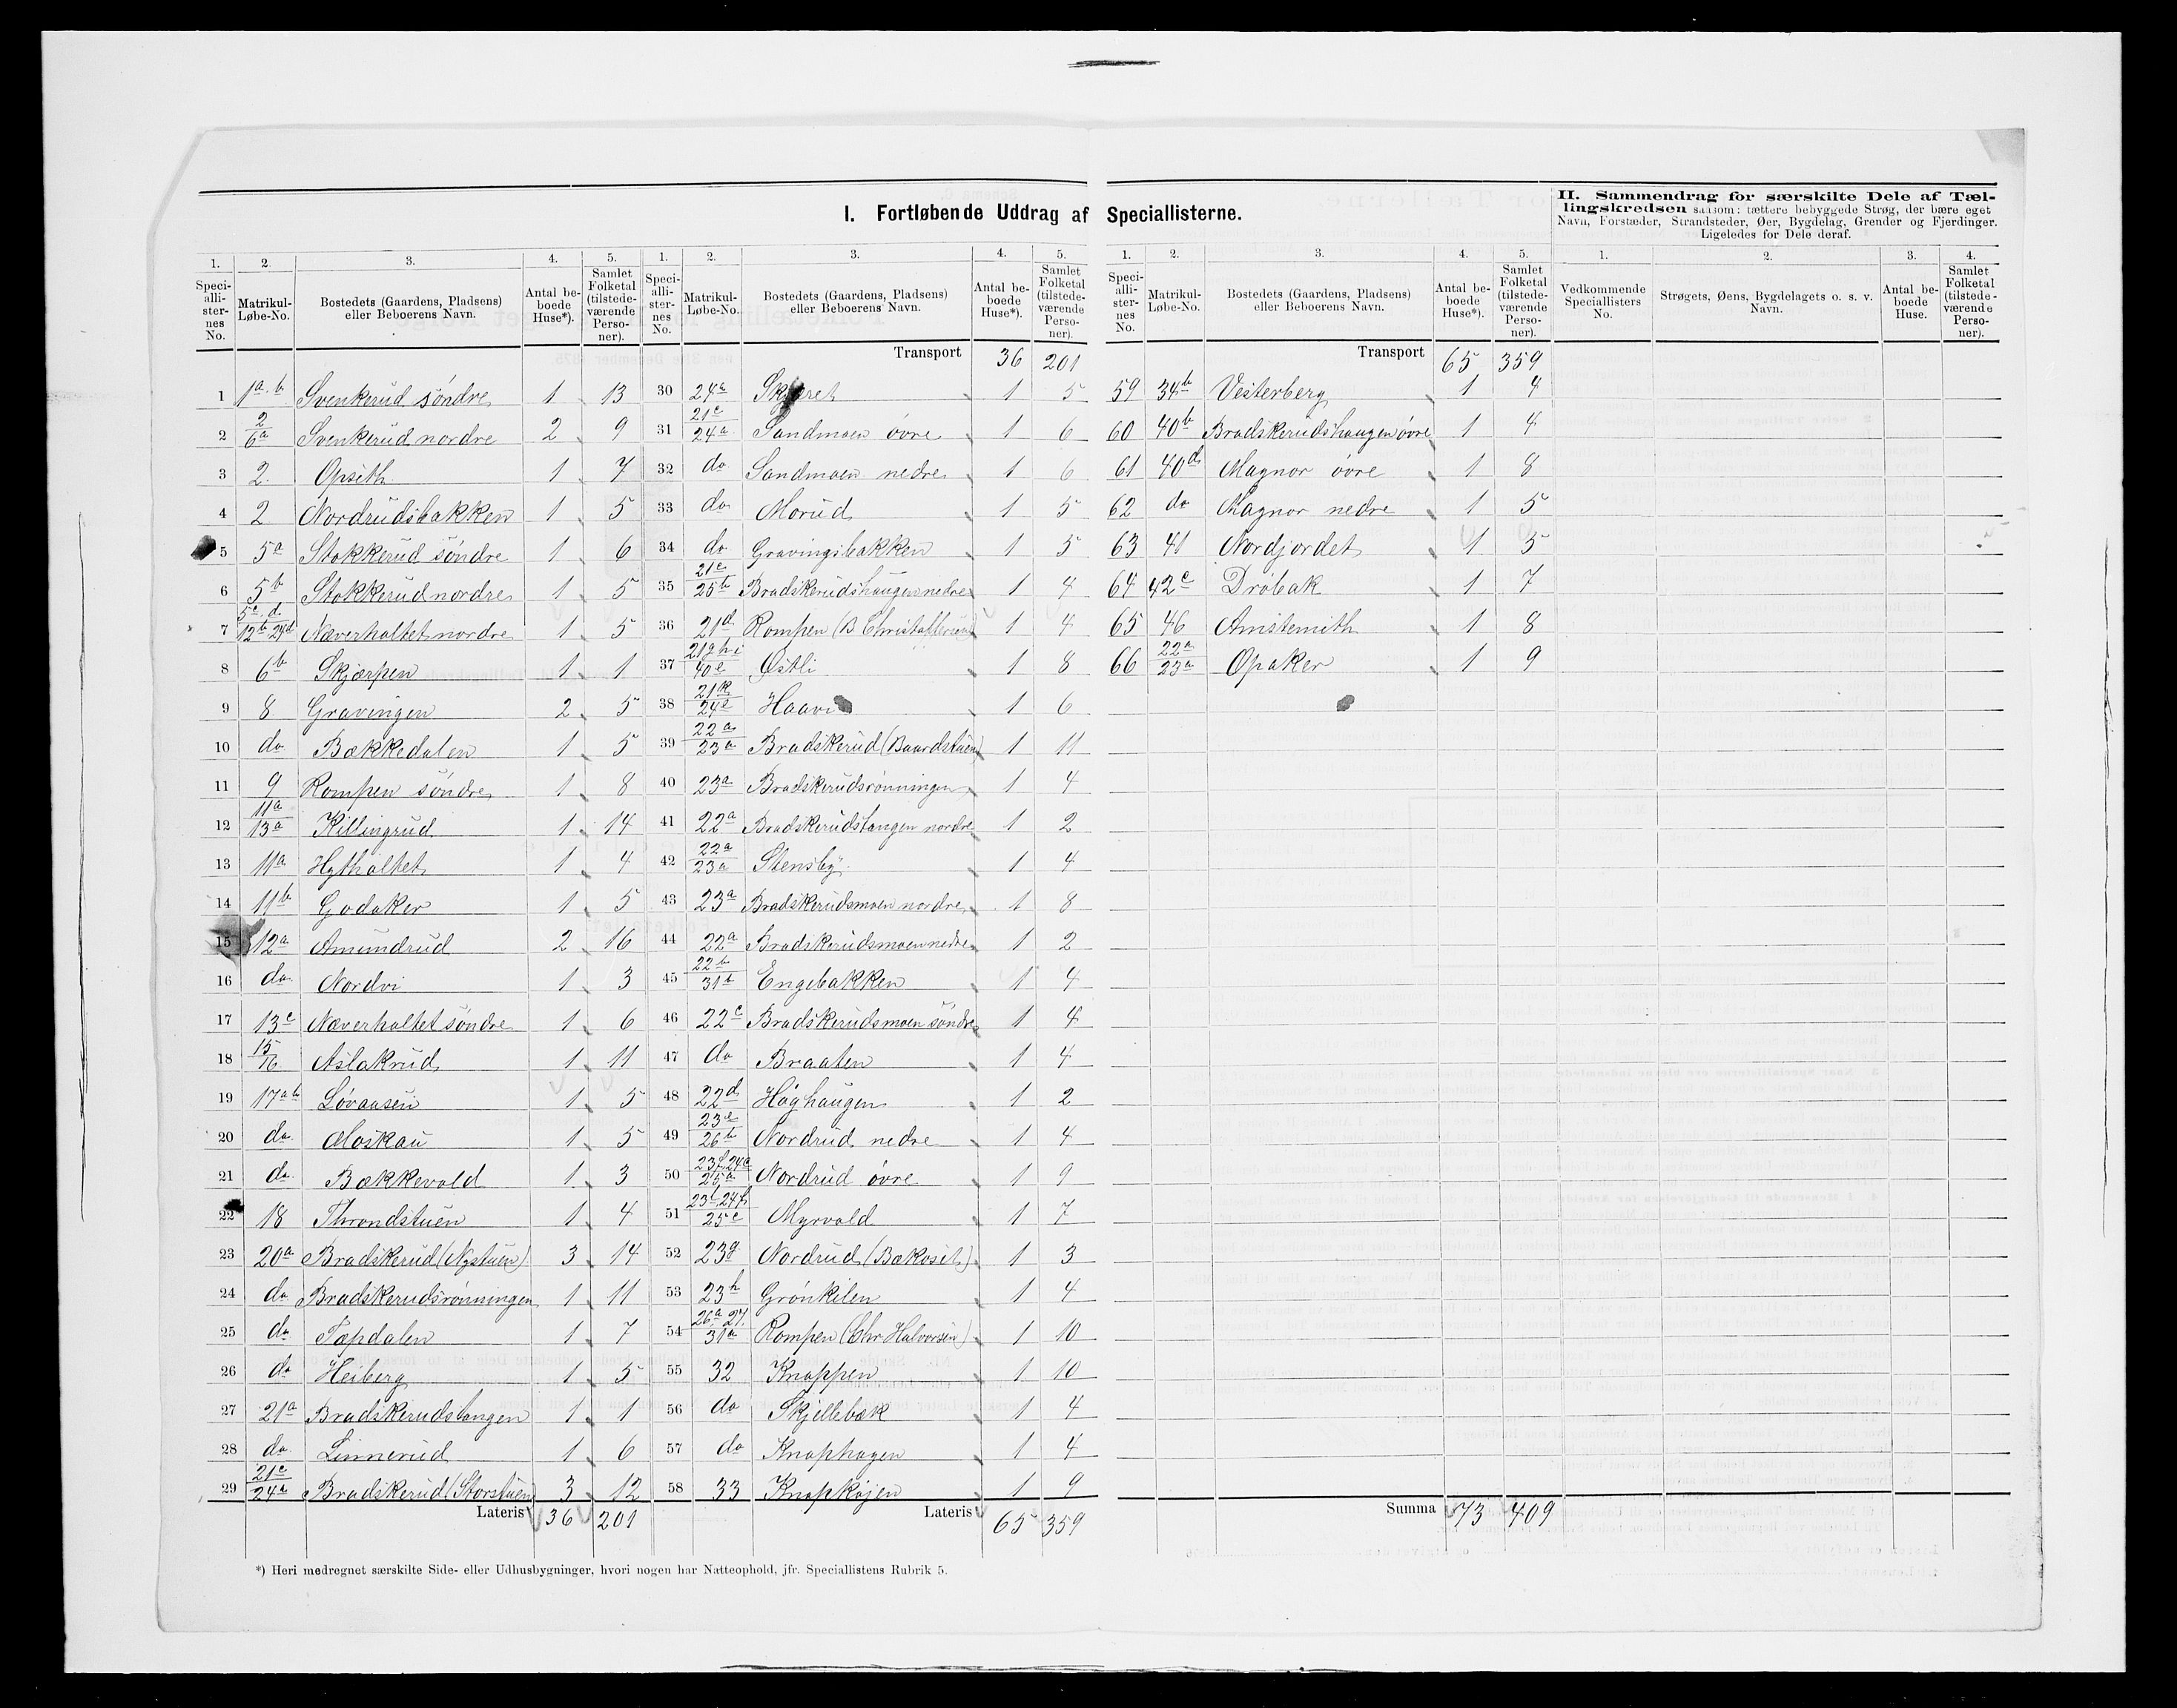 I. Fortløbende Uddrag af Speciallisterne.
II. Sammendrag for særskilte Dele af Tællingskredsen saasom: tættere bebyggede Strøg, der bære eget
Navn, Forstæder, Strandsteder, Øer, Bygdelag, Grender og Fjerdinger.
Ligeledes for Dele deraf.
1. 2. 3. 4. 5.
Speciallisternes No. Matrikul-Løbe-No. Bostedets (Gaardens, Pladsens) eller Beboerens Navn. Antal beboede Huse*). Samlet Folketal (tilstedeværende Personer).
1 1a.b Svenkerud söndre 1 13
2 2/6a Svenkerud nordre 2 9
3 2. Opseth 1 7
4 2 Nordrudsbakken 1 5
5 5a Stokkerud söndre 1 6
6 5b Stokkerud nordre 1 5
7 5c.d/12b 24d Næverholtet nordre 1 5
8 6b Skjærpen 1 1
9 8 Gravingen 2 5
10 do Bækkedalen 1 5
11 9 Rompen söndre 1 8
12 11a/13a Killingrud 1 14
13 11a Hytholtet 1 4
14 11b Godaker 1 5
15 12a Amundrud 2 16
16 do Nordvi 1 3
17 13c Næverholtet söndre 1 6
18 15/16 Aslakrud 1 11
19 17ab Lövaasen 1 5
20 do Moskau 1 5
21 do Bækkevold 1 3
22 18 Throndstuen 1 4
23 20a Bradskerud (Nystuen) 3 14
24 do Bradskerudsrönningen 1 11
25 do Tæpdalen 1 7
26 do Heiberg 1 5
27 21a Bradskerudstangen 1 1
28 do Linnerud 1 6
29 21c/24a Bradskerud (Storstuen) 3 12
Lateris 36 201
1. 2. 3. 4. 5.
Speciallisternes No. Matrikul-Løbe-No. Bostedets (Gaardens, Pladsens) eller Beboerens Navn. Antal beboede Huse*). Samlet Folketal (tilstedeværende Personer).
Transport 36 201
30 24a 1 5
31 21c/24a Sandmoen övre 1 6
32 do Sandmoen nedre 1 6
33 do Morud 1 5
34 do Gravingsbakken 1 5
35 21c/25b Bradskerudshaugen nedre 1 4
36 21d Rompen (B Christoffersen) 1 4
37 21g h i/40e Östli 1 8
38 21k/24e Haavi 1 6
39 22a/23a Bradskerud (Baardstuen) 1 11
40 23a Bradskerudsrönningen 1 4
41 22a Bradskerudstangen nordre 1 2
42 22a/23a Stensby 1 4
43 23a Bradskerudsmoen nordre 1 8
44 22a Bradskerudsmoen nedre 1 2
45 22b/31b Engebakken 1 4
46 22c Bradskerudsmoen söndre 1 4
47 do Braaten 1 4
48 22d Höghaugen 1 2
49 23e/26b Nordrud nedre 1 4
50 23f.24c/25a Nordrud övre 1 9
51 25c Myrvold 1 7
52 23g Nordrud (Bækosit) 1 3
53 23h Grönkilen 1 4
54 26a.27./31a Rompen (Chr Halvorsen) 1 10
55 32 Knappen 1 10
56 do Skjellebæk 1 4
57 do Knaphagen 1 4
58 33 Knapköjen 1 9
Lateris 65 359
1. 2. 3. 4. 5.
Speciallisternes No. Matrikul-Løbe-No. Bostedets (Gaardens, Pladsens) eller Beboerens Navn. Antal beboede Huse*). Samlet Folketal (tilstedeværende Personer).
Transport 65 359
59 34b Vesterberg 1 4
60 40b Bradskerudshaugen övre 1 4
61 40d Magnor övre 1 8
62 do Magnor nedre 1 5
63 41 Nordjordet 1 5
64 42c Dröbak 1 7
65 46 Amstemith 1 8
66 22a/23a Opaker 1 9
Summa 73 409
1. 2. 3. 4.
Vedkommende Speciallisters No. Strøgets, Øens, Bygdelagets o. s. v. Navn. Antal beboede Huse. Samlet Folketal (tilstedeværende Personer).
*) Heri medregnet særskilte Side- eller Udhusbygninger, hvori nogen har Natteophold, jfr. Speciallistens Rubrik 5.